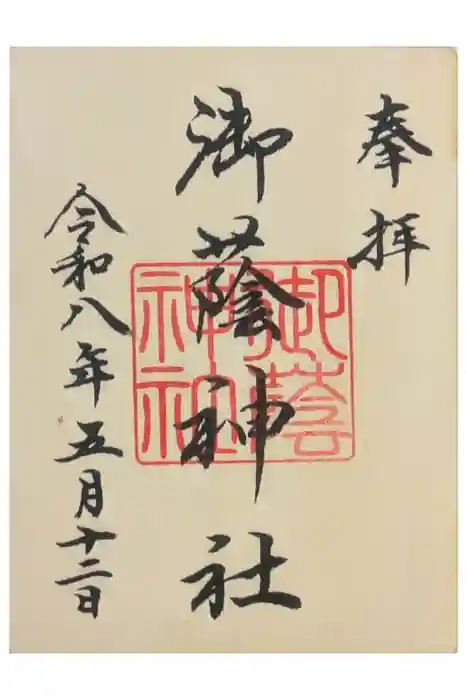 奉拝
御蔭神社
御蔭
神社
令和八年五月十二日